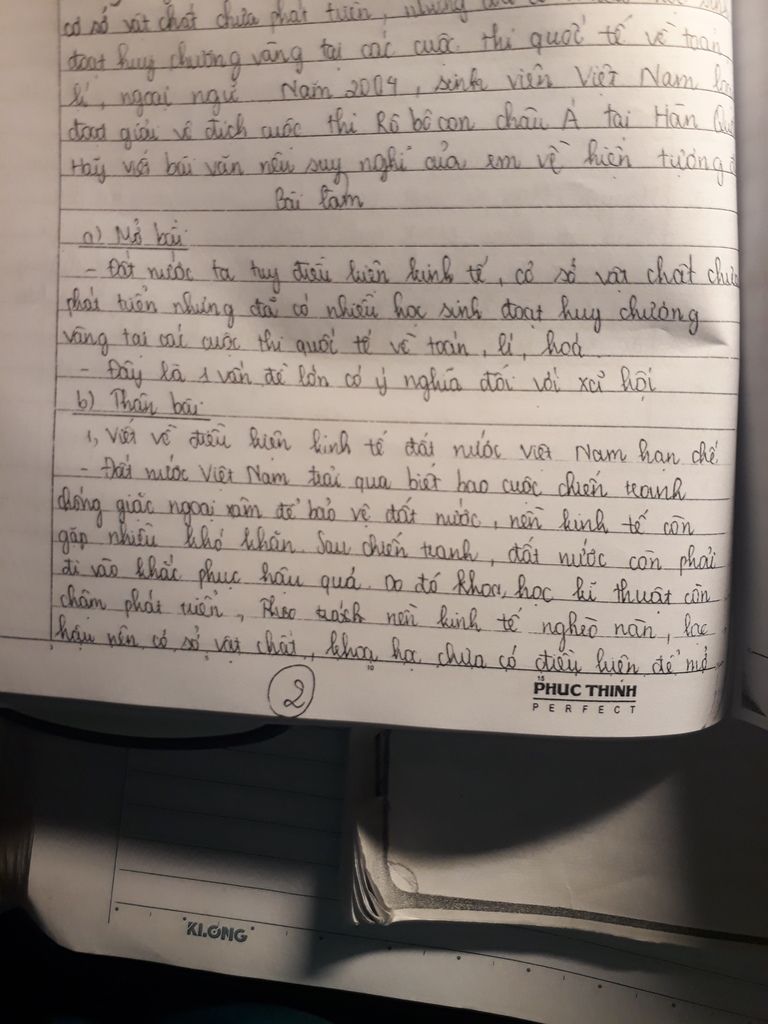 cơ sở vật chất chưa phát triển, nhưng
đoạt huy chương vàng tại các cuộc thi quốc tế về toán
lí, ngoại ngữ Năm 2004, sinh viên Việt Nam
đoạt giải vô địch cuộc thi Rôbôcon châu Á tại Hàn
Hãy viết bài văn nêu suy nghĩ của em về hiện tượng
Bài làm
a) Mở bài
- Đất nước ta tuy điều kiện kinh tế, cơ sở vật chất chưa
phát triển nhưng đã có nhiều học sinh đoạt huy chương
vàng tại các cuộc thi quốc tế về toán, lí, hoá
- Đây là 1 vấn đề lớn có ý nghĩa đối với xã hội
b) Thân bài
1, Viết về điều kiện kinh tế đất nước Việt Nam hạn chế
- Đất nước Việt Nam trải qua biết bao cuộc chiến tranh
chống giặc ngoại xâm để bảo vệ đất nước, nền kinh tế còn
gặp nhiều khó khăn. Sau chiến tranh, đất nước còn phải
đi vào khắc phục hậu quả. Do đó khoa học kĩ thuật còn
chậm phát triển, nền kinh tế nghèo nàn, lạc
hậu nên cơ sở vật chất, khoa học chưa có điều kiện để mở
2
15
PHUC THINH
PERFECT
10
KLONG